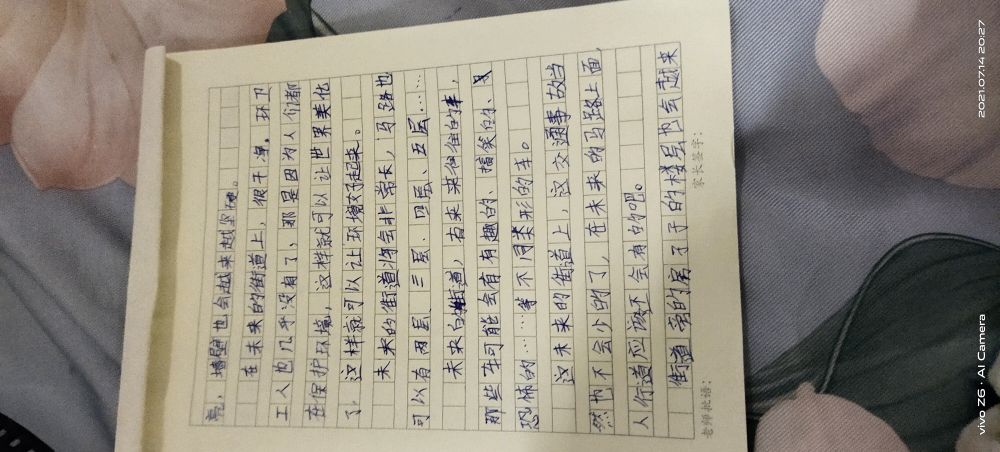 亮，墙壁也会越来越坚硬。
在未来的街道上，很干净，环卫
工人也几乎没有了，那是因为人们都
在保护环境，这样就可以让世界美化
了，这样就可以让环境好起来。
未来的街道将会非常长，马路也
可以有两层、三层、四层、五层……
未来的街道，有来来往往的车，
那些车可能会有有趣的、搞笑的、
恐怖的……等不同类形的车。
这未来的街道上，这交通事故当
然也不会少的了，在未来的马路上面，
人行道应该还会有的吧。
街道旁的房了子的楼层也会越来
老师批语：
家长签字：
vivo Z6 · AI Camera
2021.07.14 20:27